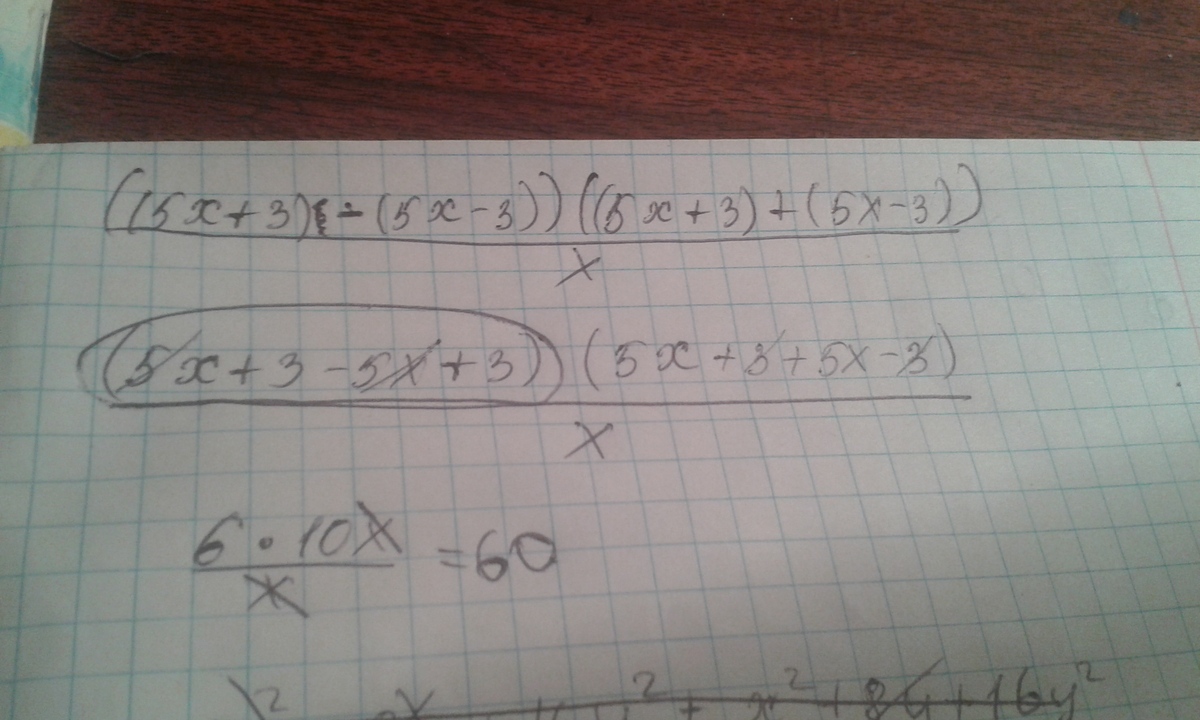 ((5x+3)-(5x-3))((5x+3)+(5x-3))
x
(5x+3-5x+3))(5x+3+5x-3)
x
6·10x
x
=60